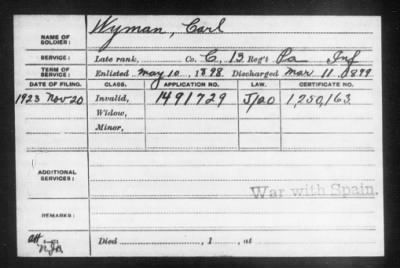 NAME OF SOLDIER: Wyman, Carl
SERVICE: Late rank, Co. C, 13 Reg't Pa Inf
TERM OF SERVICE: Enlisted May 10, 1898, Discharged Mar 11, 1899
DATE OF FILING. CLASS. APPLICATION NO. LAW. CERTIFICATE NO.
1923 Nov 20 Invalid, 1491729 J/20 1,250,163
Widow,
Minor,
ADDITIONAL SERVICES:
War with Spain.
REMARKS:
Att
Died , 1 , at